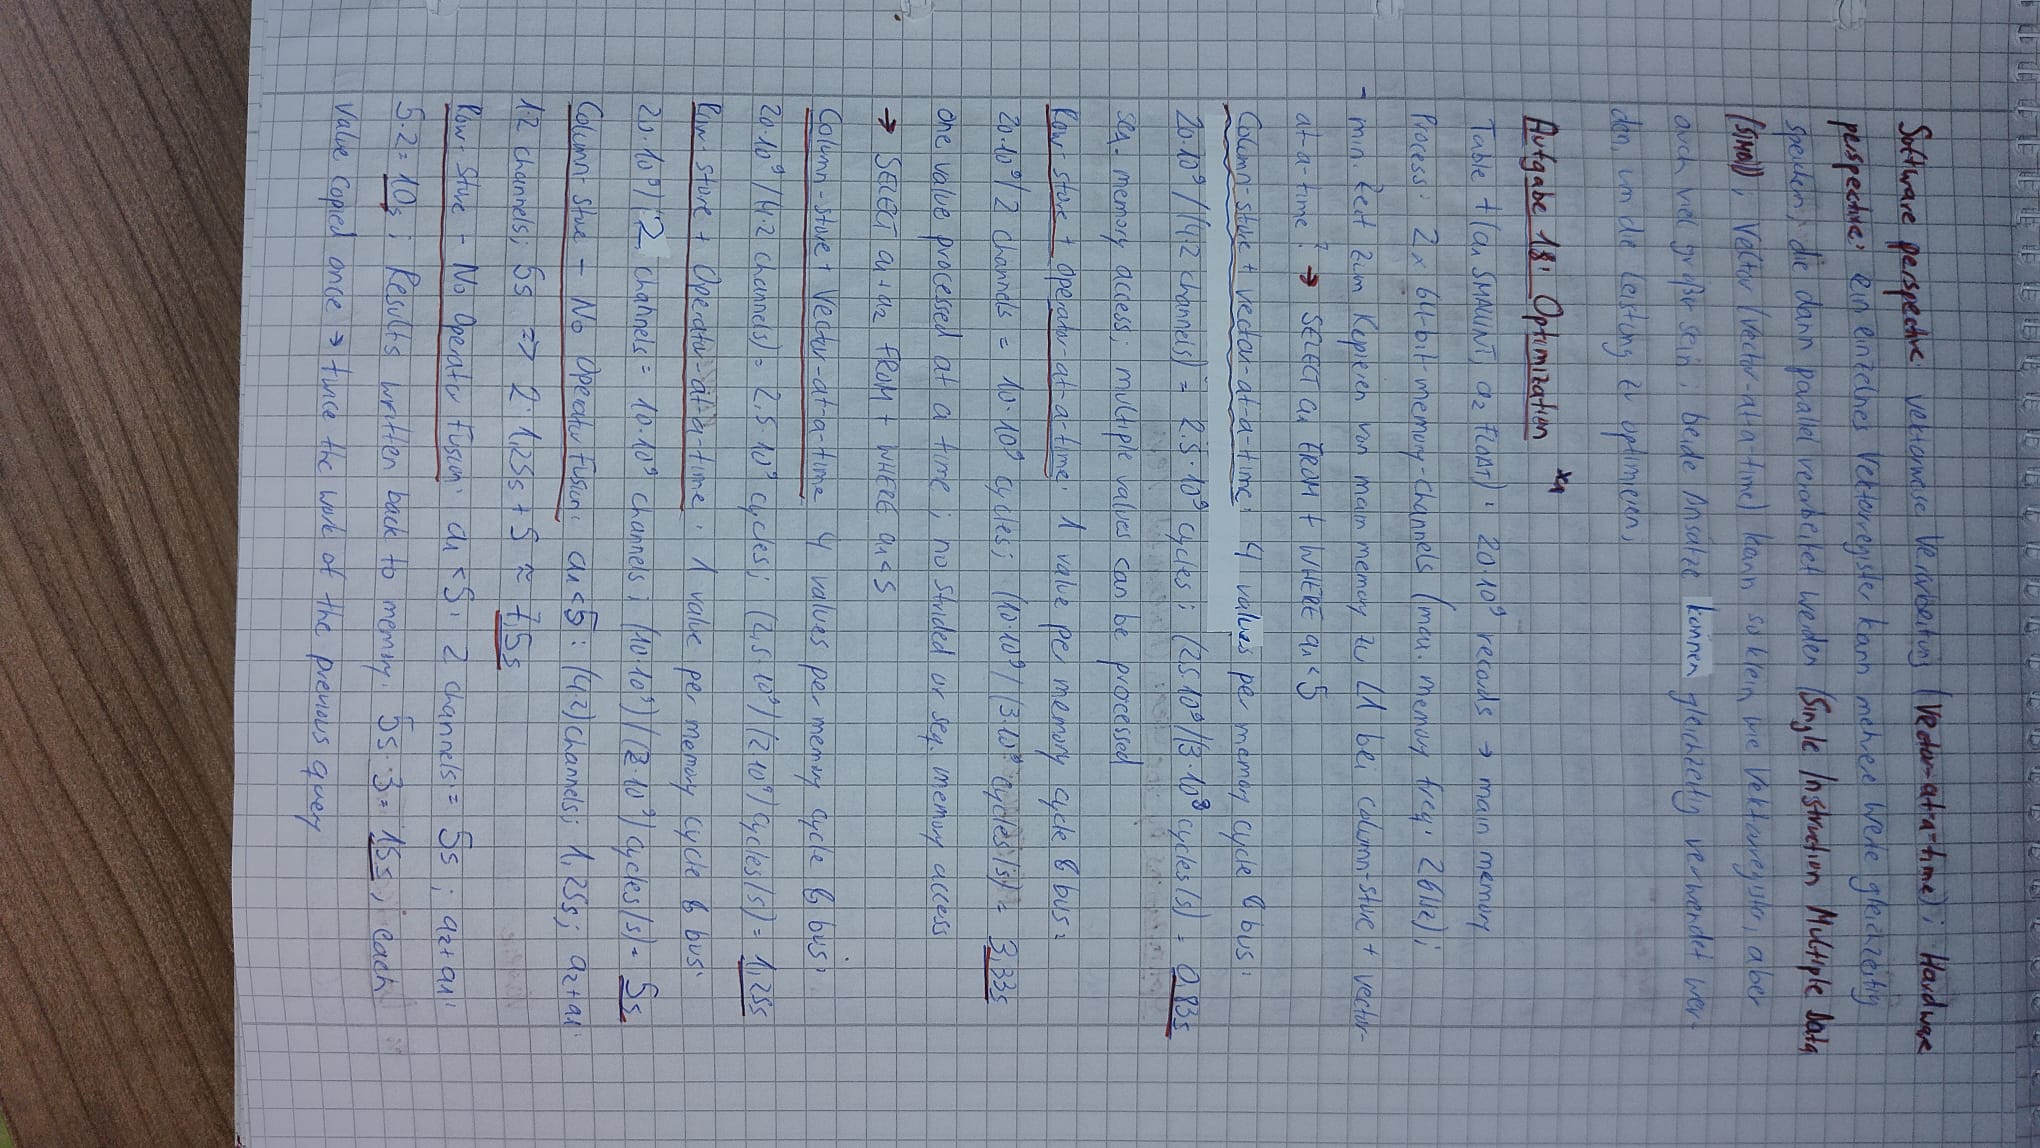 Software perspective: vektorweise Verarbeitung (Vector-at-a-time); Hardware
perspective: ein einzelnes Vektorregister kann mehrere Werte gleichzeitig
speichern, die dann parallel verarbeitet werden (Single Instruction Multiple Data
(SIMD)), Vector (vector-at-a time) kann so klein wie Vektorregister, aber
auch viel größer sein; beide Ansätze können gleichzeitig verwendet wer-
den, um die Leistung zu optimieren,
Aufgabe 18: Optimization *1
Table t(a1 SMALLINT, a2 FLOAT): 20·10⁹ records → main memory
Process: 2x 64-bit-memory-channels (max. memory freq. 2GHz);
- min. Zeit zum Kopieren von main memory zu L1 bei column-store + vector-
at-a-time? → SELECT a1 FROM t WHERE a1 < 5
Column-store + vector-at-a-time: 4 values per memory cycle & bus:
20·10⁹/(4·2 channels) = 2.5·10⁹ cycles; (2.5·10⁹/(3·10⁹ cycles/s) = 0,83s
seq. memory access; multiple values can be processed
Row-store + Operator-at-a-time: 1 value per memory cycle & bus:
20·10⁹/2 channels = 10·10⁹ cycles; (10·10⁹)/(3·10⁹ cycles/s) = 3,33s
one value processed at a time; no strided or seq. memory access
→ SELECT a1+a2 FROM t WHERE a1<5
Column-store + Vector-at-a-time 4 values per memory cycle & bus:
20·10⁹/(4·2 channels) = 2,5·10⁹ cycles; (2,5·10⁹)/(2·10⁹) cycles/s) = 1,25s
Row-store + Operator-at-a-time: 1 value per memory cycle & bus:
20·10⁹)/2 channels = 10·10⁹ channels; (10·10⁹)/(2·10⁹) cycles/s) = 5s
Column-store - No Operator Fusion: a1<5: (4·2) channels; 1,25s; a2+a1:
1·2 channels; 5s => 2·1,25s + 5 ≈ 7,5s
Row-Store - No Operator Fusion: a1<5: 2 channels = 5s; a2+a1:
5·2=10s; Results written back to memory: 5s·3=15s; each
value copied once → twice the work of the previous query